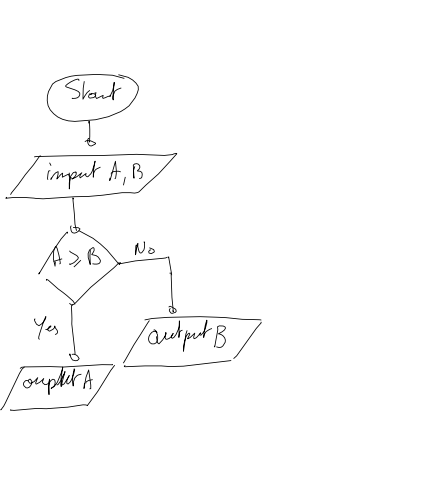 Start
input A, B
A ⩾ B
No
Yes
output B
ouptut A